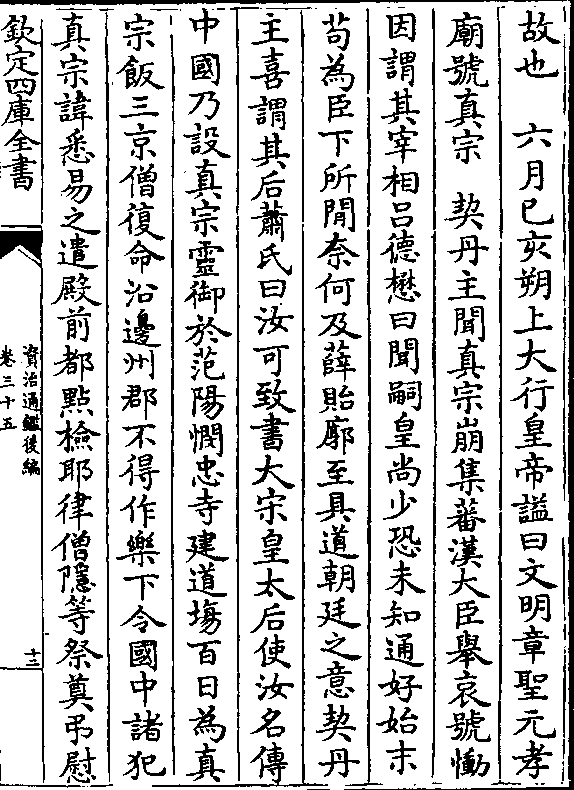 故也　六月已亥朔上大行皇帝謚曰文明章聖元孝
廟號真宗　契丹主聞真宗崩集蕃漢大臣舉哀號慟
因謂其宰相吕德懋曰聞嗣皇尚少恐未知通好始末
茍為臣下所間奈何及薛貽廓至具道朝廷之意契丹
主喜謂其后蕭氏曰汝可致書大宋皇太后使汝名傳
中國乃設真宗靈御於范陽憫忠寺建道塲百日為真
宗飯三京僧復命沿邊州郡不得作樂下令國中諸犯
真宗諱悉易之遣殿前都㸃檢耶律僧隱等祭奠弔慰
欽定四庫全書
資治通鑑後編
卷三十五
十三